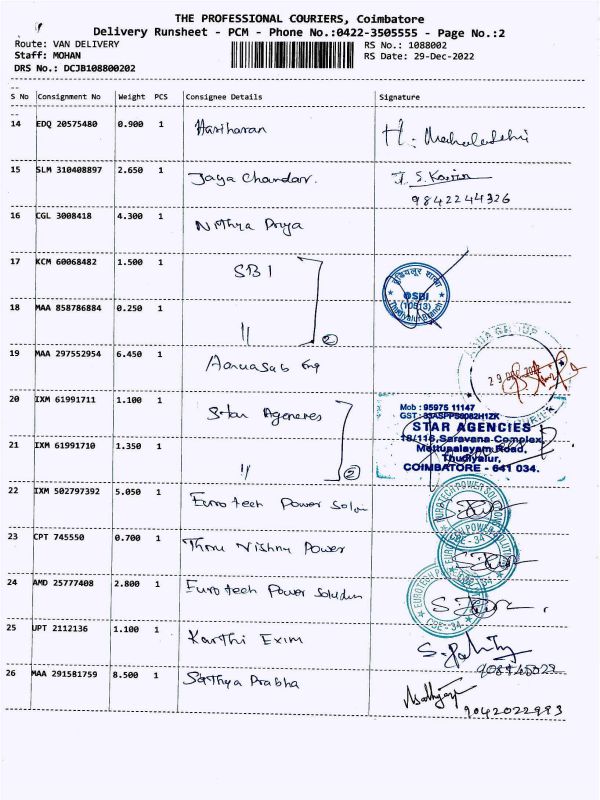 THE PROFESSIONAL COURIERS, Coimbatore
Delivery Runsheet - PCM - Phone No.:0422-3505555 - Page No.:2
Route: VAN DELIVERY
RS No.: 1088002
Staff: MOHAN
RS Date: 29-Dec-2022
DRS No.: DCJB108800202
S No Consignment No Weight PCS Consignee Details Signature
14 EDQ 20575480 0.900 1 Hariharan H.
15 SLM 310408897 2.650 1 Jaya Chandar. J. S.
9842244326
16 CGL 3008418 4.300 1 Nithya Priya
17 KCM 60068482 1.500 1 SBI
इडियलूर शाखा
SBI
(10513)
Thudiyalur Branch
18 MAA 858786884 0.250 1 〃 2
19 MAA 297552954 6.450 1 Eng
20 IXM 61991711 1.100 1 Star Agencies
Mob : 95975 11147
GST :
STAR AGENCIES
18/116, Saravana Complex,
Mettupalayam Road,
Thudiyalur,
COIMBATORE - 641 034.
21 IXM 61991710 1.350 1 〃 2
22 IXM 502797392 5.050 1 Eurotech Power Solu
EUROTECH POWER SOLUTIONS
23 CPT 745550 0.700 1 Thiru Vishnu Power
CBE-34
24 AMD 25777408 2.800 1 Eurotech Power Solution
CBE-34
25 UPT 2112136 1.100 1 Karthi Exim
26 MAA 291581759 8.500 1 Sathya Prabha
9042022993